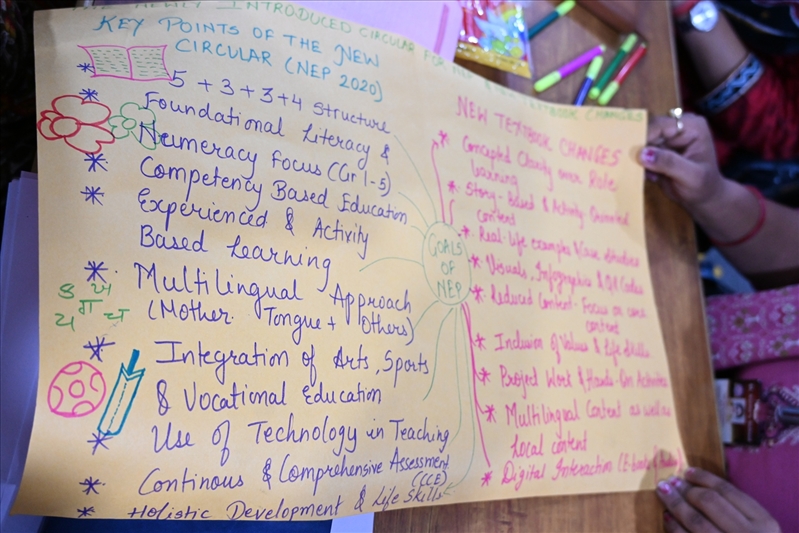 THE NEWLY INTRODUCED CIRCULAR FOR NEP TEXTBOOK CHANGES
KEY POINTS OF THE NEW
CIRCULAR (NEP 2020)
5 + 3 + 3 + 4 structure
Foundational Literacy &
Numeracy Focus (Gr 1-5)
Competency Based Education
Experienced & Activity
Based Learning
Multilingual Approach
(Mother Tongue + Others)
Integration of Arts, Sports
& Vocational Education
Use of Technology in Teaching
Continous & Comprehensive Assessment
(CCE)
Holistic Development & Life Skills
GOALS
OF
NEP
NEW TEXTBOOK CHANGES
Concepted Clarity over Role
Learning
Story-Based & Activity-Oriented
content
Real-life examples & Case studies
Visuals, Infographics & QR Codes
Reduced Content-Focus on core
content
Inclusion of Values & Life skills
Project Work & Hands-On Activities
Multilingual Content as well as
local content
Digital Interaction (E-books & Audio)